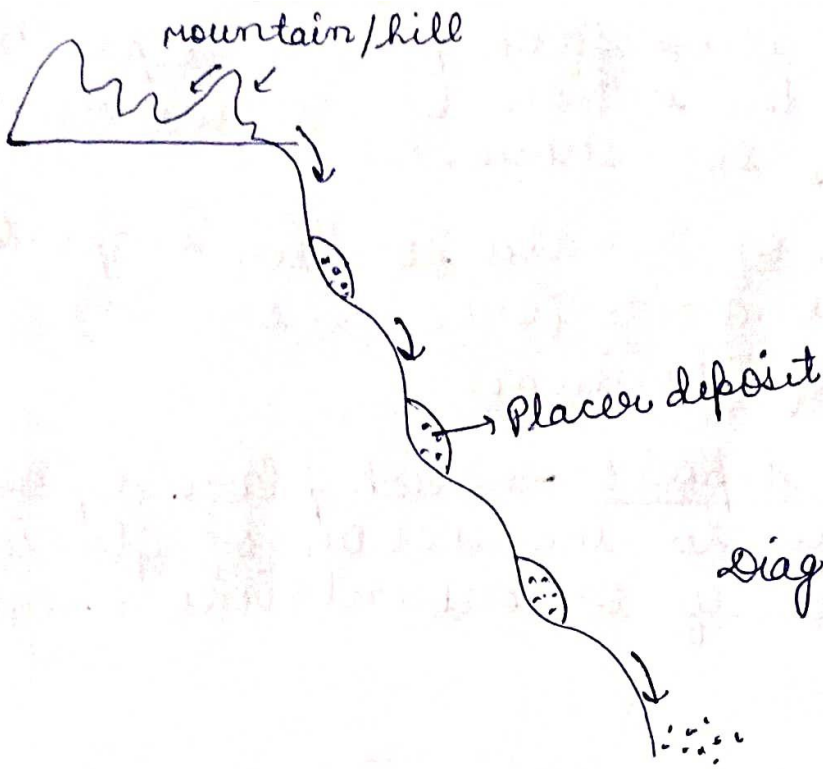 mountain/hill
Placer deposit
Diag